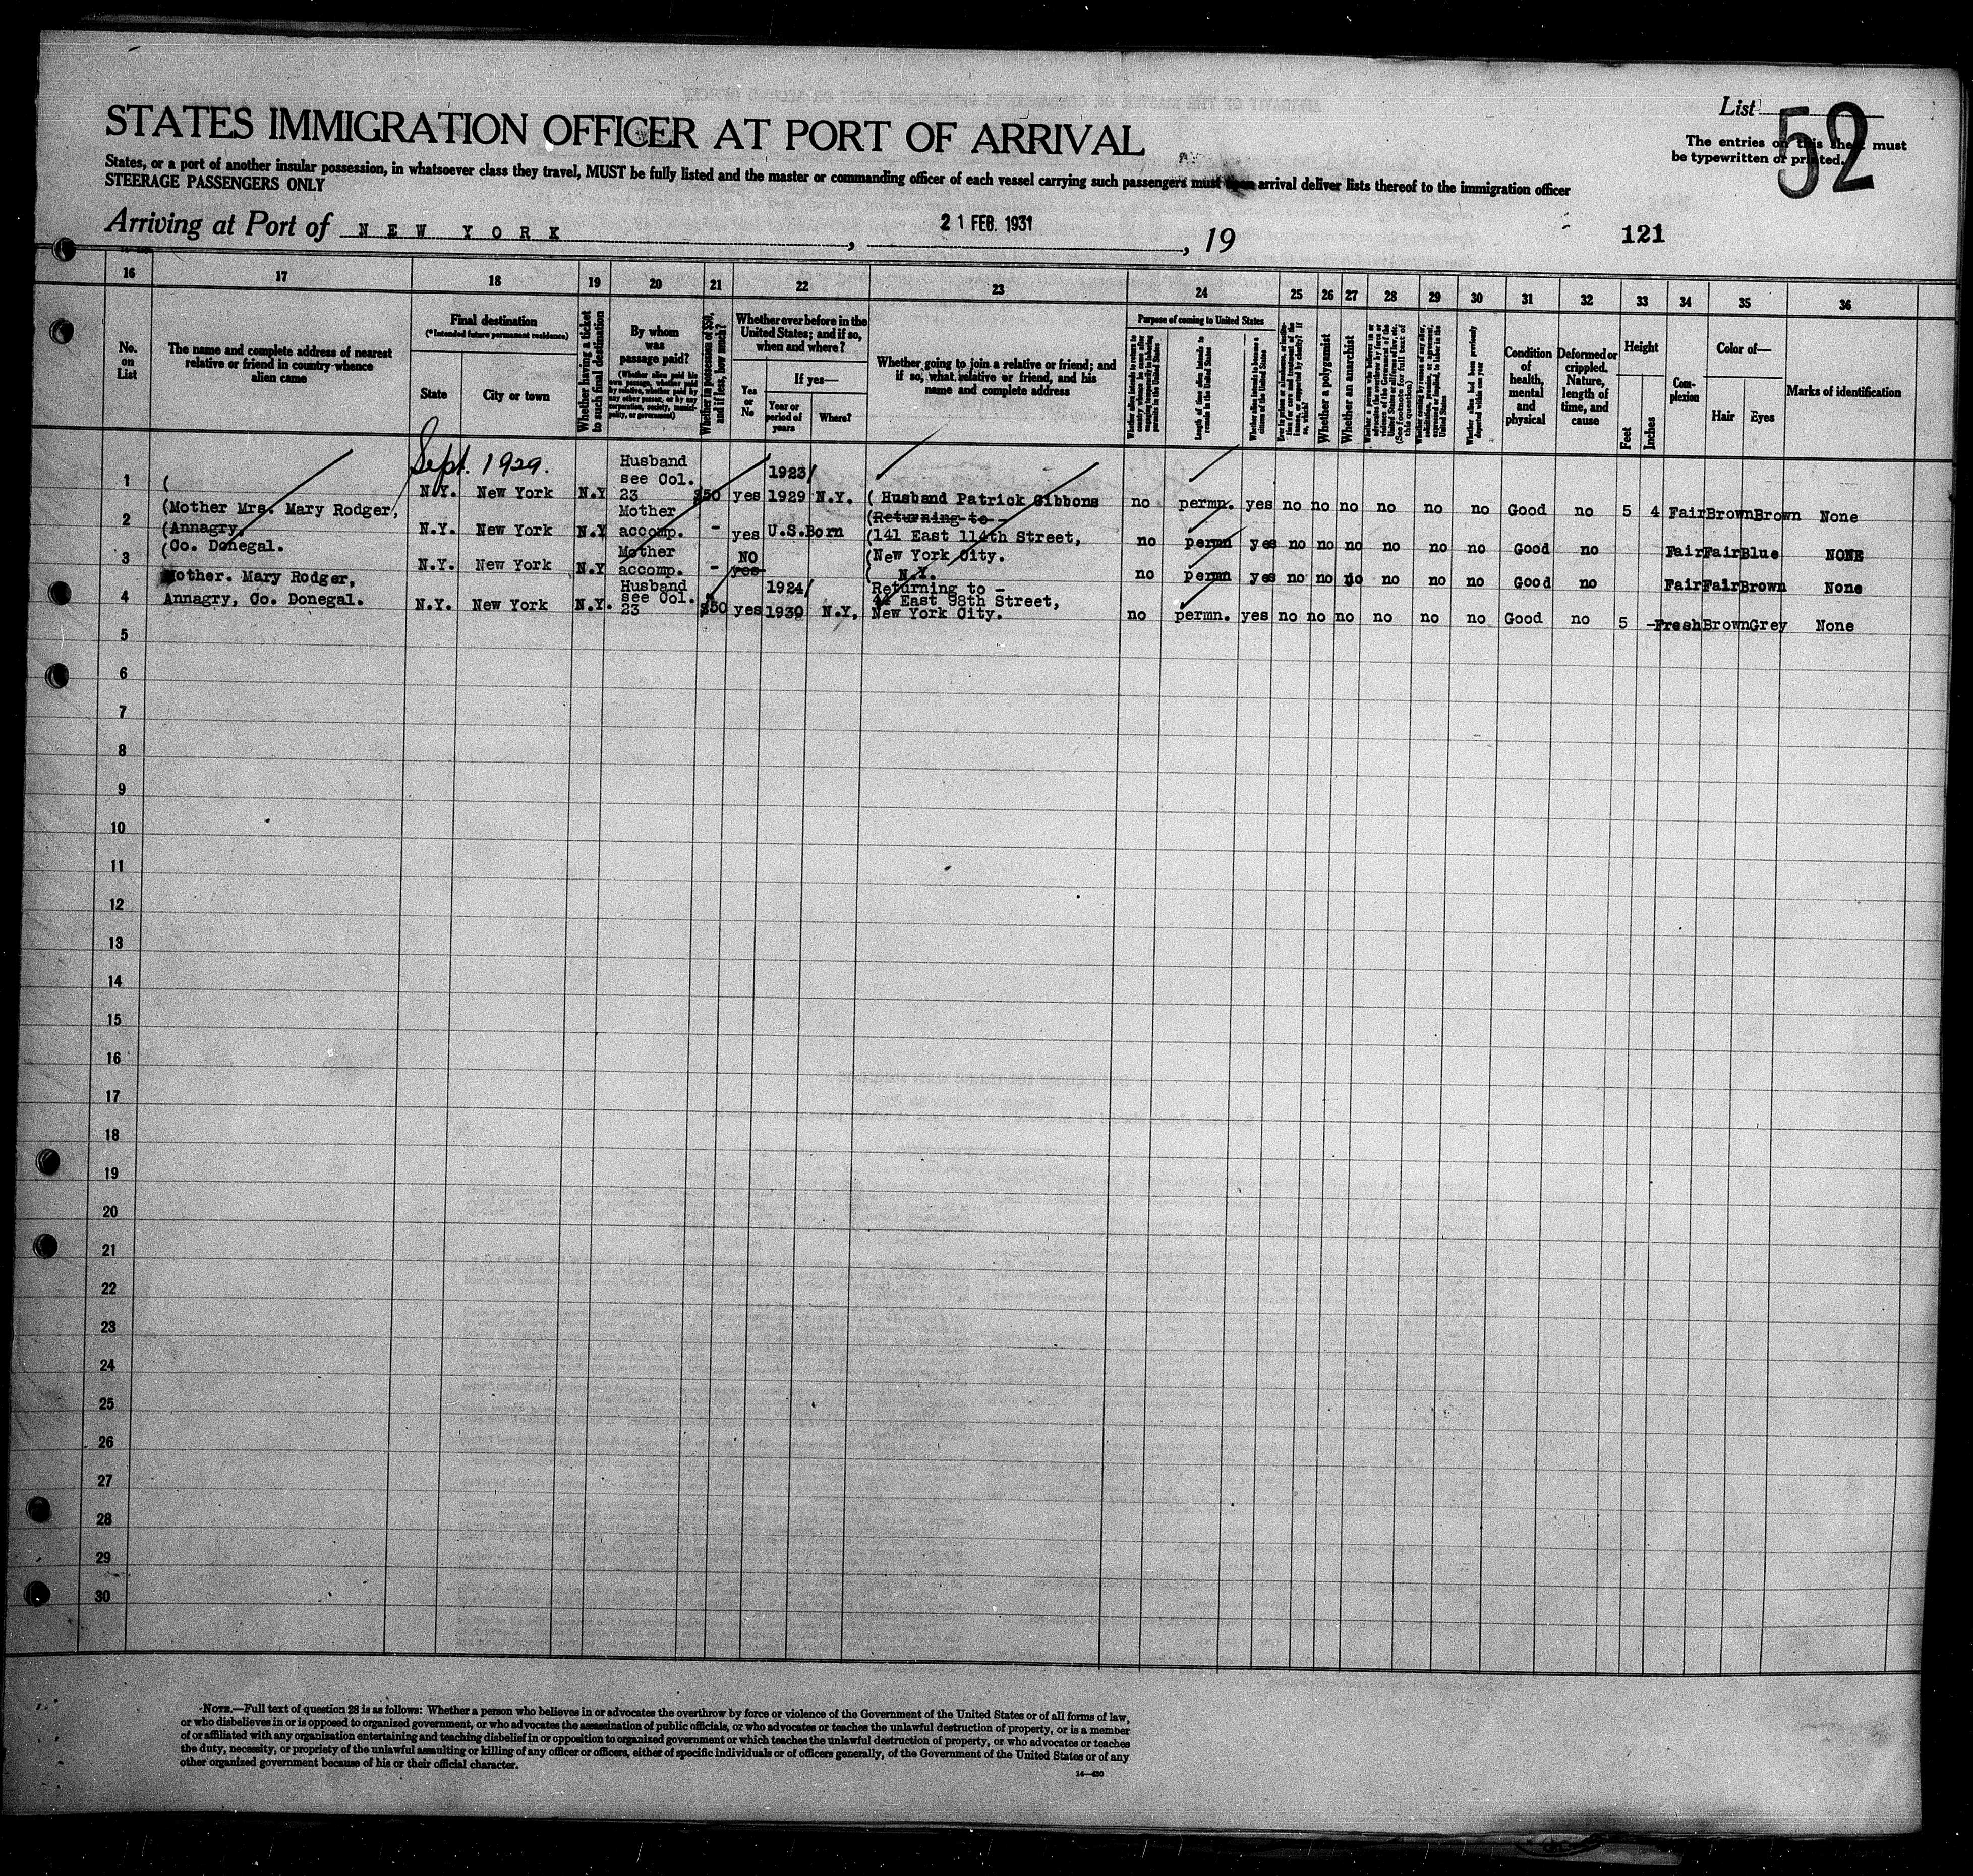 STATES IMMIGRATION OFFICER AT PORT OF ARRIVAL
List
52
The entries on this sheet must
be typewritten or printed.
States, or a port of another insular possession, in whatsoever class they travel, MUST be fully listed and the master or commanding officer of each vessel carrying such passengers must upon arrival deliver lists thereof to the immigration officer
STEERAGE PASSENGERS ONLY
Arriving at Port of NEW YORK, 21 FEB. 1931, 19
121
16 17 18 19 20 21 22 23 24 25 26 27 28 29 30 31 32 33 34 35 36
No. on List
The name and complete address of nearest relative or friend in country whence alien came
Final destination
(*Intended future permanent residence)
State
City or town
Whether having a ticket to such final destination
By whom was passage paid?
(Whether alien paid his own passage, whether paid by relative, whether paid by any other person, or by any corporation, society, municipality, or government)
Whether in possession of $50, and if less, how much?
Whether ever before in the United States; and if so, when and where?
Yes or No
If yes—
Year or period of years
Where?
Whether going to join a relative or friend; and if so, what relative or friend, and his name and complete address
Purpose of coming to United States
Length of time alien intends to remain in the United States
Whether alien intends to become a citizen of the United States
Whether a polygamist
Whether an anarchist
(See footnote for full text of this question)
Whether alien had been previously deported within one year
Condition of health, mental and physical
Deformed or crippled. Nature, length of time, and cause
Height
Feet
Inches
Complexion
Color of—
Hair
Eyes
Marks of identification
Sept. 1929.
1 ( N.Y. New York N.Y Husband see Col. 23 $50 yes 1923/ 1929 N.Y. ( Husband Patrick Gibbons no permn. yes no no no no no no Good no 5 4 Fair Brown Brown None
2 (Mother Mrs. Mary Rodger, (Annagry, N.Y. New York N.Y Mother accomp. - yes U.S.Born (Returning to - (141 East 114th Street, no permn yes no no no no no no Good no Fair Fair Blue NONE
3 (Co. Donegal. N.Y. New York N.Y Mother accomp. - NO yes (New York City. ( N.Y. no permn yes no no no no no no Good no Fair Fair Brown None
4 Mother. Mary Rodger, Annagry, Co. Donegal. N.Y. New York N.Y. Husband see Col. 23 $50 yes 1924/ 1930 N.Y. Returning to - East 98th Street, New York City. no permn. yes no no no no no no Good no 5 - Fresh Brown Grey None
5
6
7
8
9
10
11
12
13
14
15
16
17
18
19
20
21
22
23
24
25
26
27
28
29
30
NOTE.—Full text of question 28 is as follows: Whether a person who believes in or advocates the overthrow by force or violence of the Government of the United States or of all forms of law,
or who disbelieves in or is opposed to organized government, or who advocates the assassination of public officials, or who advocates or teaches the unlawful destruction of property, or is a member
of or affiliated with any organization entertaining and teaching disbelief in or opposition to organized government or which teaches the unlawful destruction of property, or who advocates or teaches
the duty, necessity, or propriety of the unlawful assaulting or killing of any officer or officers, either of specific individuals or of officers generally, of the Government of the United States or of any
other organized government because of his or their official character.
14—430